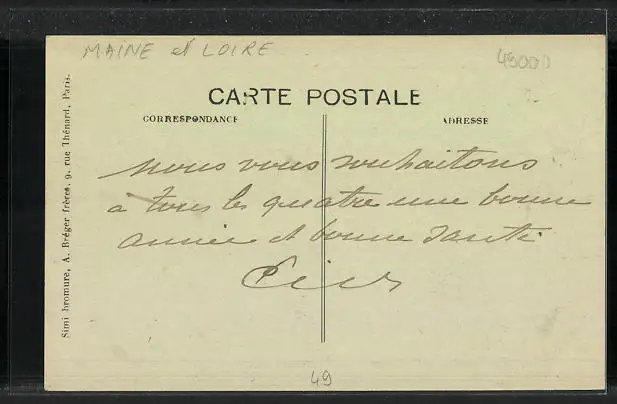 MAINE et LOIRE
49000
CARTE POSTALE
CORRESPONDANCE
ADRESSE
nous vous souhaitons
à tous les quatre une bonne
année et bonne santé.
49
Simi bromure, A. Bréger frères, 9, rue Thénard, Paris.